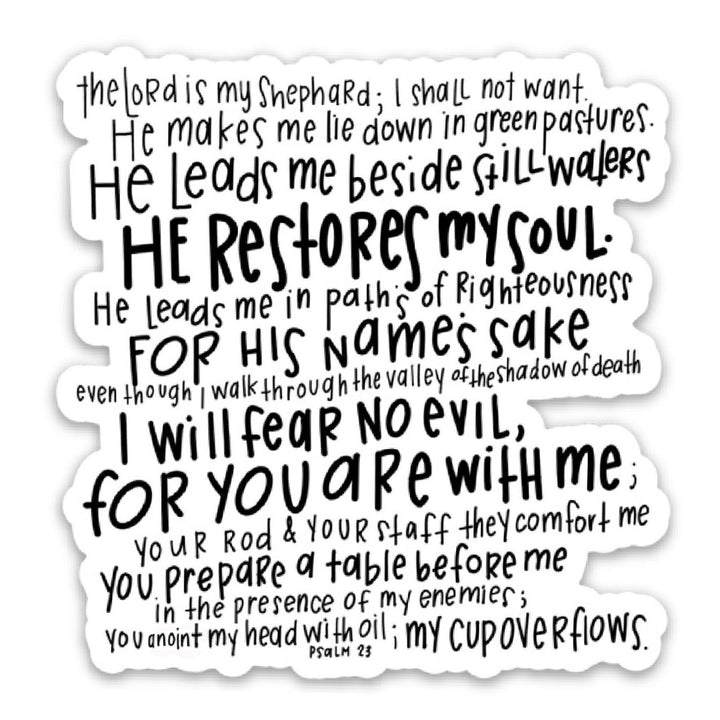 the LORD is my Shephard; I shall not want.
He makes me lie down in green pastures.
He Leads me beside still waters
HE ReStORes my soul.
He Leads me in path's of Righteousness
FOR HIS Name's sake
even though I walk through the valley of the shadow of death
I will feaR NO eviL,
foR YOU aRe with me;
YOUR Rod & YOUR staff they comfort me
you prepaRe a table before me
in the presence of my enemies;
you anoint my head with oil; my cup overflows.
PSALM 23